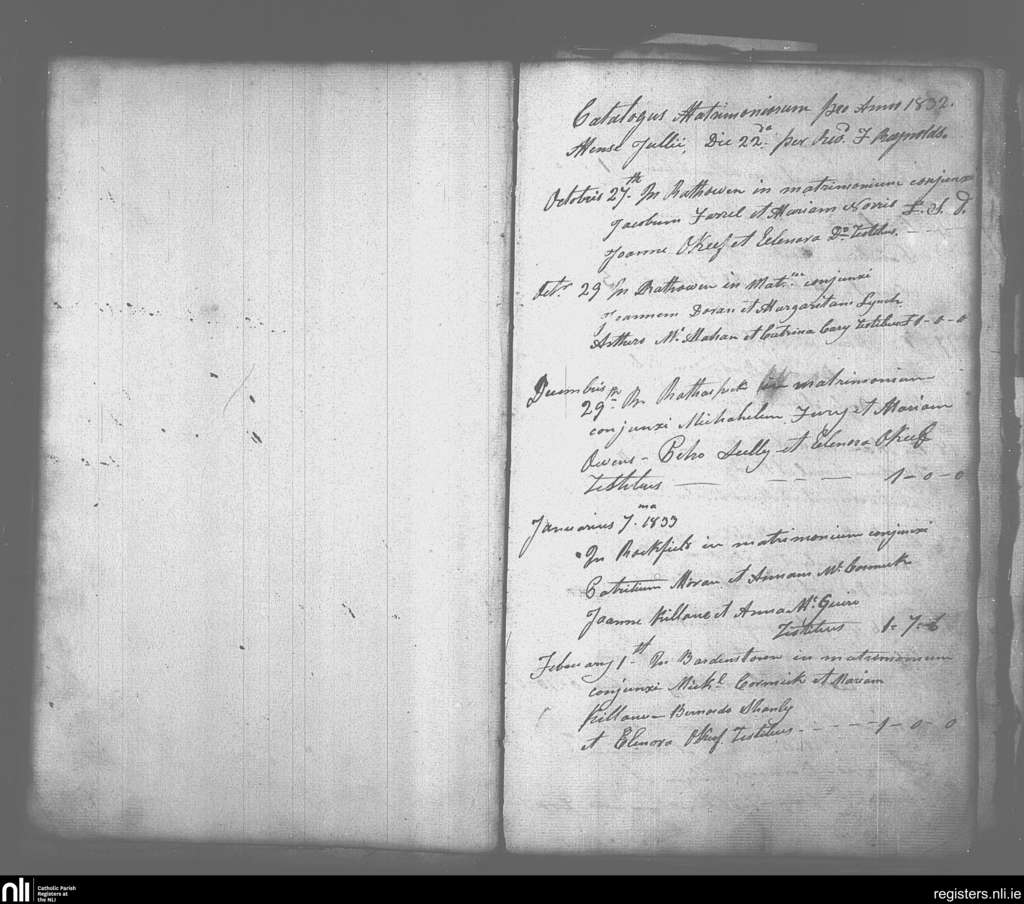 Catalogus Matrimoniorum pro Anno 1832.
Mense Jullii, Die 22.da per Revd. F Raynolds.
Octobris 27.th In Rathowen in matrimonium conjunxi
Jacobum Farrel et Mariam Norris £. S. d.
Joanne OKeef et Eelenora Do. Testibus. - - -
Octr. 29 In Rathowen in Mat.m conjunxi
Joannem Doran et Margaritam Lynch
Arthuro Mc. Mahan et Catrina Cary Testibus 1-0-0
Decembris
29th. In Rathaspick in matrimonium
conjunxi Michahelem Fury et Mariam
Owens - Petro Scelly et Elenora OKeef
Testibus - - - - 1-0-0
Januarius 7.ma 1833
In Rockfield in matrimonium conjunxi
Patritium Moran et Annam Mc. Cormick
Joanne Killane et Anna Mc. Guire
Testibus 1-7-6
February 1.st In Bardenstown in matrimonium
conjunxi Michl. Cormick et Mariam
Killane - Bernardo Shanly
et Elenora OKeef. Testibus - - - - 1-0-0
nli
Catholic Parish
Registers at
the NLI
registers.nli.ie